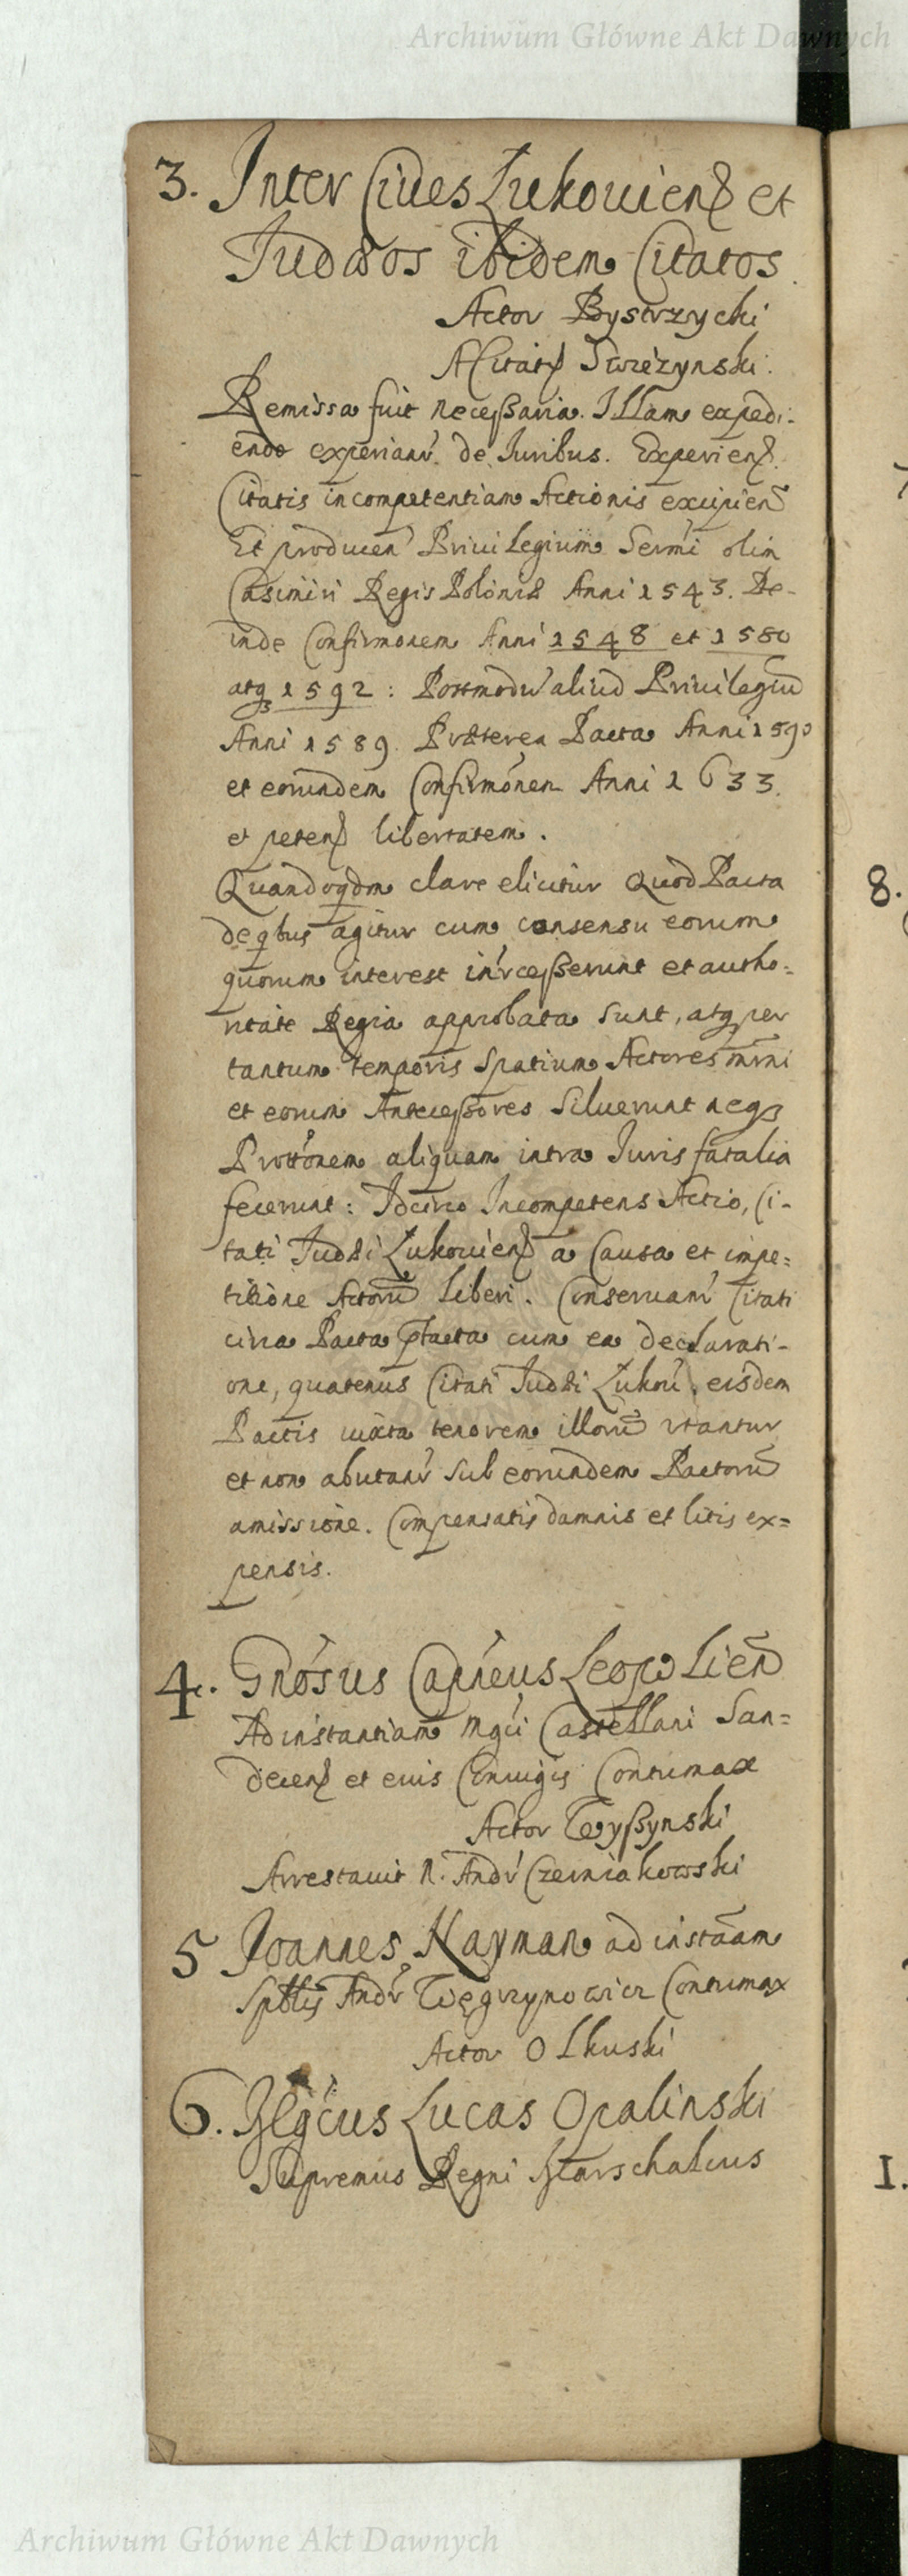 Archiwum Główne Akt Dawnych
3. Inter Cives Lukovien et
Judæos ibidem Citatos
Actor Bystrzycki
A Citat Swiezynski.
Remissa fuit necessaria. Illam expedi-
endo experiant de Juribus. Experien
Citatis incompetentiam Actionis excipien
Et producen Privilegium Sermi olim
Casimiri Regis Poloniæ Anni 1543. De-
inde Confirmonem Anni 1548 et 1580
atq 1592 : Postmodu aliud Privilegiu
Anni 1589. Præterea Pacta Anni 1590
et eorundem Confirmonen Anni 1633.
et peten libertatem.
Quandoqdm clare elicitur Quod Pacta
de qbus agitur cum consensu eorum
quorum interest intrcesserunt et autho=
ritate Regia approbata sunt, atq per
tantum temporis spatium Actores mrni
et eorum Antecessores siluerunt neq
Prottonem aliquam intra Juris fatalia
fecerunt : Idcirco Incompetens Actio, Ci-
tati Judæi Lukovien a Causa et impe=
titione Actoru liberi. Conservant Citati
circa Pacta ptacta cum ea declarati-
one, quatenus Citati Judæi Lukov. eisdem
Pactis iuxta tenorem illoru utantur
et non abutant sub eorundem Pactoru
amissione. Compensatis damnis et litis ex=
pensis.
4. Gnosus Capneus Leopolien
Ad instantiam Mgci Castellani San=
decen et eius Coniugis Contumax
Actor Wyssynski
Arrestavit N. Andr Czerniakowski
5 Joannes Nayman ad instaam
Spttis Andr Węgrzynowicz Contumax
Actor Olkuski
6. Illgcus Lucas Opalinski
Supremus Regni Marschalcus
8.
1.
Archiwum Główne Akt Dawnych